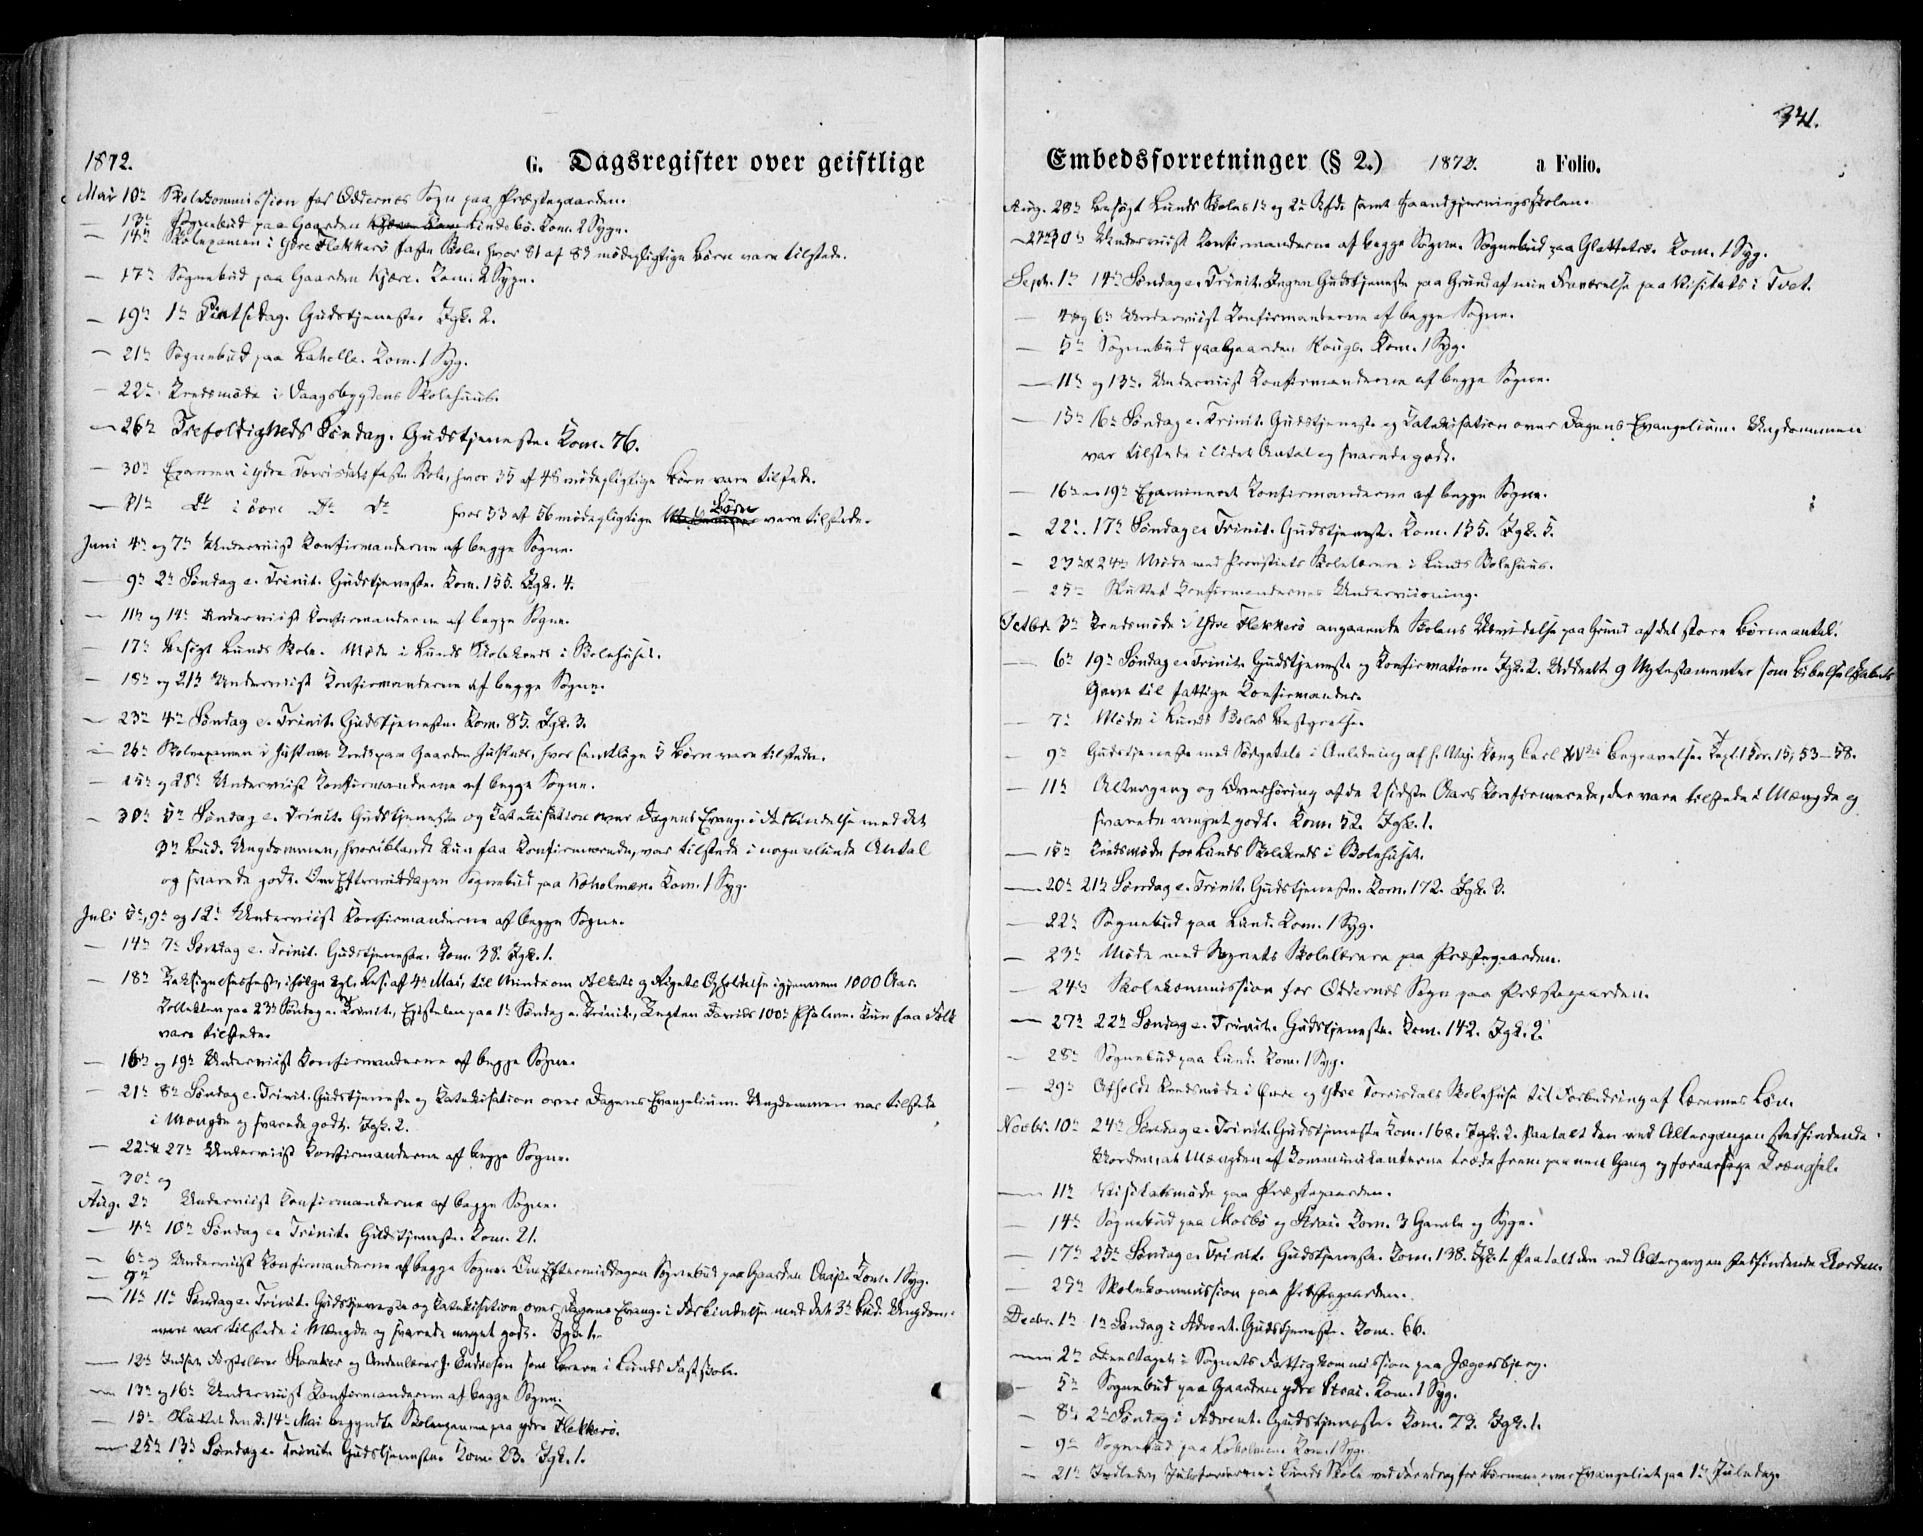 1872. G. Dagsregister over geistlige
Mai 10de Skolekommission for Oddernes Sogn paa Præstegaarden.
— 13de Sognebud paa Gaarden Lindebø. Kom. 2 Syge.
— 14de Skoleexamen i ydre Flekkerø faste Skole, hvor 81 af 83 mødepligtige Børn vare tilstede.
— 17de Sognebud paa Gaarden Kjære. Kom. 2 Syge.
— 19de 1ste Pintsedag. Gudstjeneste. Igk. 2.
— 21de Sognebud paa Lahelle. Kom. 1 Syg.
— 22de Kredsmøde i Vaagsbygdens Skolehuus.
— 26de Trefoldigheds Søndag. Gudstjeneste. Kom. 76.
— 30de Examen i ydre Torrisdals faste Skole, hvor 35 af 48 mødepligtige Børn vare tilstede.
— 31te Do i øvre Do Do hvor 33 af 56 mødepligtige Børn vare tilstede.
Juni 4de og 7de Underviist Konfirmanderne af begge Sogne.
— 9de 2den Søndag e. Trinit. Gudstjeneste. Kom. 155. Igk. 4.
— 11te og 14de Underviist Konfirmanderne af begge Sogne.
— 17de Besøgt Lunds Skole. Møde i Lunds Skolekreds i Skolehuset.
— 18de og 21de Underviist Konfirmanderne af begge Sogne.
— 23de 4de Søndag e. Trinit. Gudstjeneste. Kom. 85. Igk. 3.
— 26de Skoleexamen i Kreds paa Gaarden, hvor samtlige 5 Børn vare tilstede.
— 25de og 28de Underviist Konfirmanderne af begge Sogne.
— 30de 5te Søndag e. Trinit. Gudstjeneste og Katekisation over Dagens Evang. i Forbindelse med det
3die Bud. Ungdommen, hvoriblandt kun faa Konfirmerede, var tilstede i nogenlunde Antal
og svarede godt. Om Eftermiddagen Sognebud paa Koholmen. Kom. 1 Syg.
Juli 5te, 9de og 12te Underviist Konfirmanderne af begge Sogne.
— 14de 7de Søndag e. Trinit. Gudstjeneste. Kom. 38. Igk. 1.
— 18de Taksigelsesfest, ifølge kgl. Res. af 4de Mai, til Minde om Folkets og Rigets Opholdelse igjennem 1000 Aar.
Kollekten paa 23de Søndag e. Trinit., Epistelen paa 1ste Søndag e. Trinit., Texten Davids 100de Psalme. Kun faa Folk
vare tilstede.
— 16de og 19de Underviist Konfirmanderne af begge Sogne.
— 21de 8de Søndag e. Trinit. Gudstjeneste og Katekisation over Dagens Evangelium. Ungdommen var tilstede
i Mængde og svarede godt. Igk. 2.
— 22de & 27de Underviist Konfirmanderne af begge Sogne.
— 30te og
Aug. 2den Underviist Konfirmanderne af begge Sogne.
— 4de 10de Søndag e. Trinit. Gudstjeneste. Kom. 21.
— 6te og Underviist Konfirmanderne af begge Sogne. Om Eftermiddagen Sognebud paa Gaarden. Kom. 1 Syg.
— 9de
— 11te 11te Søndag e. Trinit. Gudstjeneste og Katekisation over Dagens Evang. i Forbindelse med det 3die Bud. Ungdom-
men var tilstede i Mængde og svarede meget godt. Igk. 1.
— 12te Indsat Førstelærer og Andenlærer J. Endresen som Lærere i Lunds Fastskole.
— 13de og 16de Underviist Konfirmanderne af begge Sogne.
— 15de Sluttet den d. 14de Mai begyndte Skoleexamen paa ydre Flekkerø.
— 25de 13de Søndag e. Trinit. Gudstjeneste. Kom. 23. Igk. 1.
341.
Embedsforretninger (§ 2.) 1872. a Folio.
Aug. 28de Besøgt Lunds Skoles 1ste og 2den Afd. samt Haandgjerningsskolen.
— 27de & 30te Underviist Konfirmanderne af begge Sogne. Sognebud paa Glattetre. Kom. 1 Syg.
Septr. 1ste 14de Søndag e. Trinit. Ingen Gudstjeneste paa Grund af min Fraværelse paa Visitats i Tvet.
— 4de og 6te Underviist Konfirmanderne af begge Sogne.
— 5te Sognebud paa Gaarden. Kom. 1 Syg.
— 11te og 13de. Underviist Konfirmanderne af begge Sogne.
— 15de 16de Søndag e. Trinit. Gudstjeneste og Katekisation over Dagens Evangelium. Ungdommen
var tilstede i lidet Antal og svarede godt.
— 16de – 19de Examineret Konfirmanderne af begge Sogne.
— 22de. 17de Søndag e. Trinit. Gudstjeneste. Kom. 155. Igk. 5.
— 23de & 24de Møde med Provstiets Skolelærere i Lunds Skolehuus.
— 25de Sluttet Konfirmandernes Underviisning.
Octbr. 3die Kredsmøde i Ydre Flekkerø angaaende Skolens Udvidelse paa Grund af det store Børneantal.
— 6te 19de Søndag e. Trinit. Gudstjeneste og Konfirmation. Igk. 2. Uddeelt 9 Nytestamenter som Bibelselskabets
Gave til fattige Konfirmander.
— 7de Møde i Lunds Skoles Bestyrelse.
— 9de Gudstjeneste med Sørgetale i Anledning af H. Maj. Kong Carl XVdes Begravelse. Text 1 Kor. 15, 53–58.
— 11te Altergang og Overhøring af de 2 sidste Aars Konfirmerede, der vare tilstede i Mængde og
svarede meget godt. Kom. 52. Igk. 1.
— 18de Kredsmøde for Lunds Skolekreds i Skolehuset.
— 20de 21de Søndag e. Trinit. Gudstjeneste. Kom. 172. Igk. 3.
— 22de Sognebud paa Lund. Kom. 1 Syg.
— 23de Møde med Sognets Skolelærere paa Præstegaarden.
— 24de Skolekommission for Oddernes Sogn paa Præstegaarden.
— 27de 22de Søndag e. Trinit. Gudstjeneste. Kom. 142. Igk. 2.
— 28de Sognebud paa Lund. Kom. 1 Syg.
— 29de Afholdt Kredsmøde i Øvre og Ydre Torrisdals Skolehuse til Forbedring af Lærernes Løn.
Novbr. 10de 24de Søndag e. Trinit. Gudstjeneste Kom. 168. Igk. 2. Paatalt den ved Altergangen stedfindende
Uorden, at Mængden af Kommunikanterne træde frem paa een Gang og foraarsage Trængsel.
— 11te Visitatsmøde paa Præstegaarden.
— 14de Sognebud paa Mosbø og Strai. Kom. 3 Gamle og Syge.
— 17de 25de Søndag e. Trinit. Gudstjeneste. Kom. 138. Igk. 1. Paatalt den ved Altergangen stedfindende Uorden.
— 29de Skolekommission paa Præstegaarden.
Decbr. 1ste 1ste Søndag i Advent. Gudstjeneste. Kom. 66.
— 2den Deeltaget i Sognets Fattigkommission paa Jægersbjerg.
— 5te Sognebud paa Gaarden ydre Strai. Kom. 1 Syg.
— 8de 2den Søndag i Advent. Gudstjeneste. Kom. 73. Igk. 1.
— 9de Sognebud paa Koholmen. Kom. 1 Syg.
— 21de Juleferierne i Lunds Skole ved Foredrag for Børnene over Evangeliet paa 1ste Juledag.